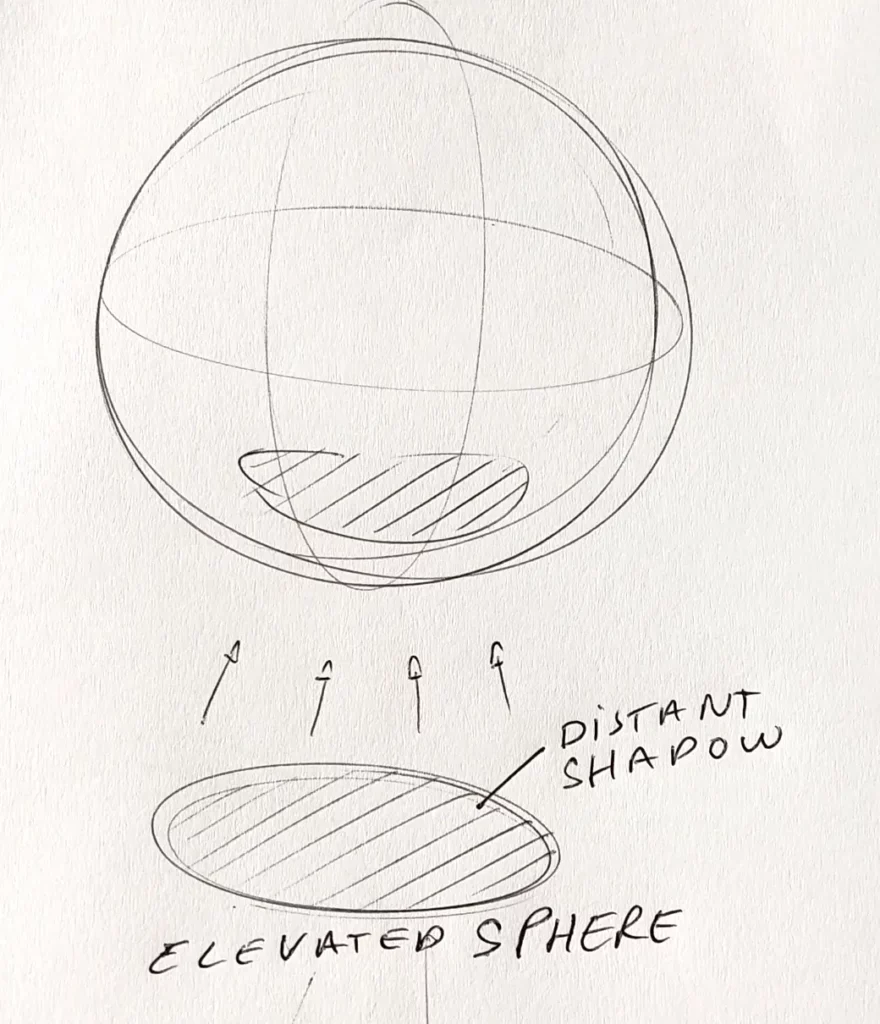 DISTANT
SHADOW
ELEVATED SPHERE